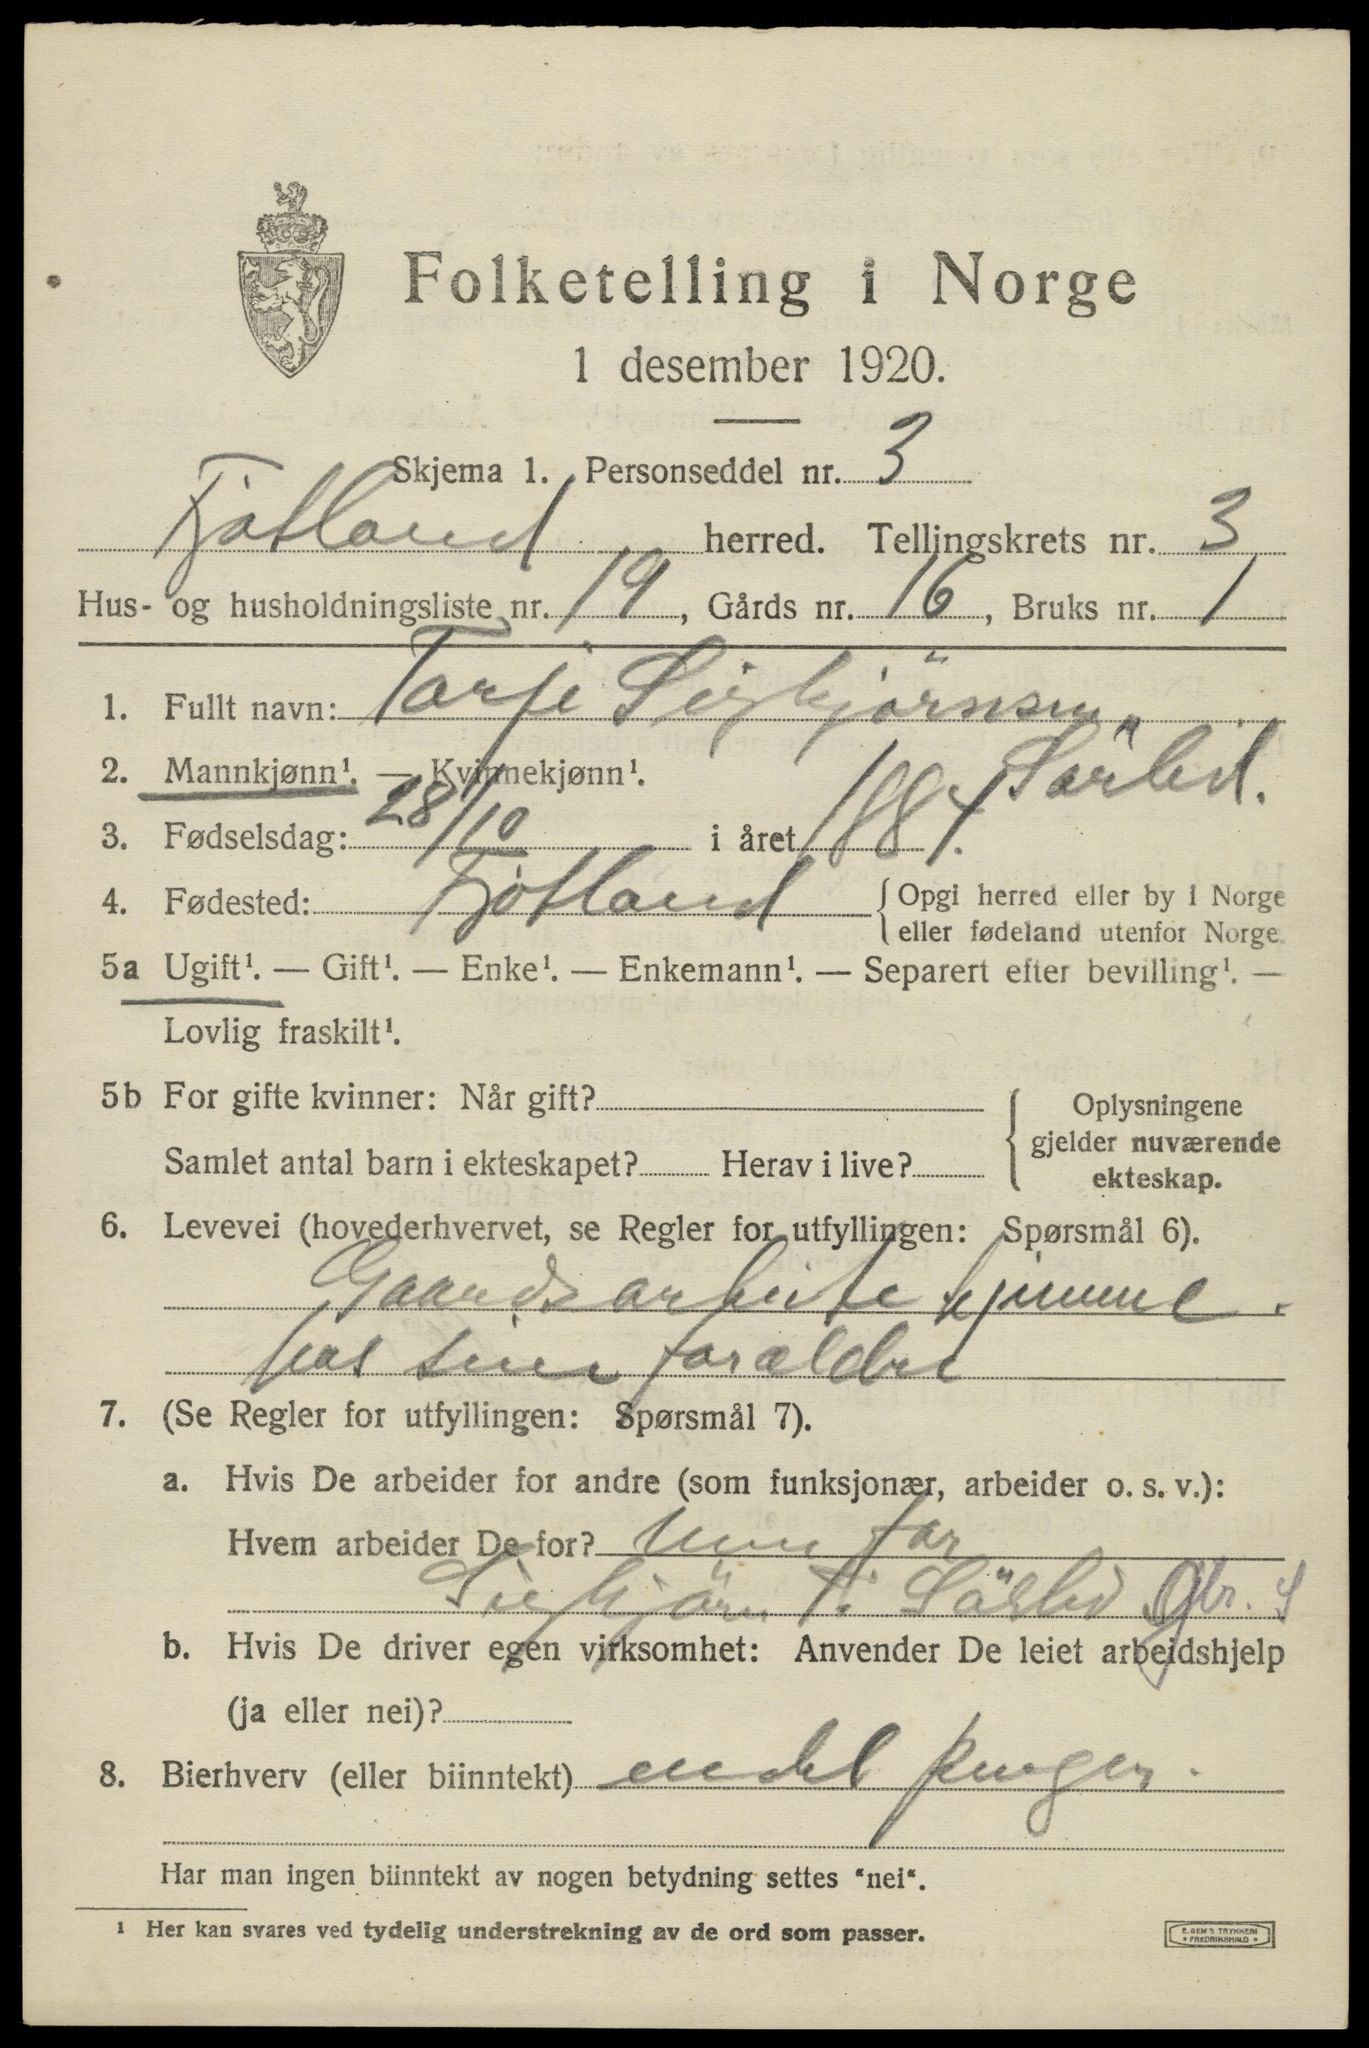 Folketelling i Norge
1 desember 1920.
Skjema 1. Personseddel nr. 3
Fjotland herred. Tellingskrets nr. 3
Hus- og husholdningsliste nr. 19, Gårds nr. 16, Bruks nr. 1
1. Fullt navn: Tarje Sigbjörnsen
Sörlid.
2. Mannkjønn¹. — Kvinnekjønn¹.
3. Fødselsdag: 28/10 i året 1884.
4. Fødested: Fjotland { Opgi herred eller by i Norge
eller fødeland utenfor Norge.
5a Ugift¹. — Gift¹. — Enke¹. — Enkemann¹. — Separert efter bevilling¹. —
Lovlig fraskilt¹.
5b For gifte kvinner: Når gift? { Oplysningene
gjelder nuværende
ekteskap.
Samlet antal barn i ekteskapet? Herav i live?
6. Levevei (hovederhvervet, se Regler for utfyllingen: Spørsmål 6).
Gaardsarbeide hjemme
hos sine forældre
7. (Se Regler for utfyllingen: Spørsmål 7).
a. Hvis De arbeider for andre (som funksjonær, arbeider o. s. v.):
Hvem arbeider De for? min far
Sigbjörn T. Sörlid Gbr. S
b. Hvis De driver egen virksomhet: Anvender De leiet arbeidshjelp
(ja eller nei)?
8. Bierhverv (eller biinntekt) endel penger.
Har man ingen biinntekt av nogen betydning settes "nei".
¹ Her kan svares ved tydelig understrekning av de ord som passer.
E. SEM'S TRYKKERI
FREDRIKSHALD